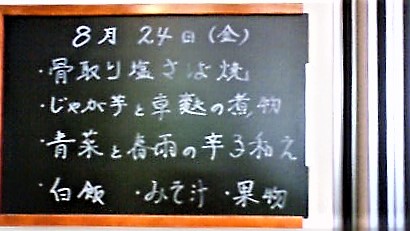 8月 24日(金)
・骨取り塩さば焼
・じゃが芋と車麩の煮物
・青菜と春雨の辛子和え
・白飯 ・みそ汁 ・果物